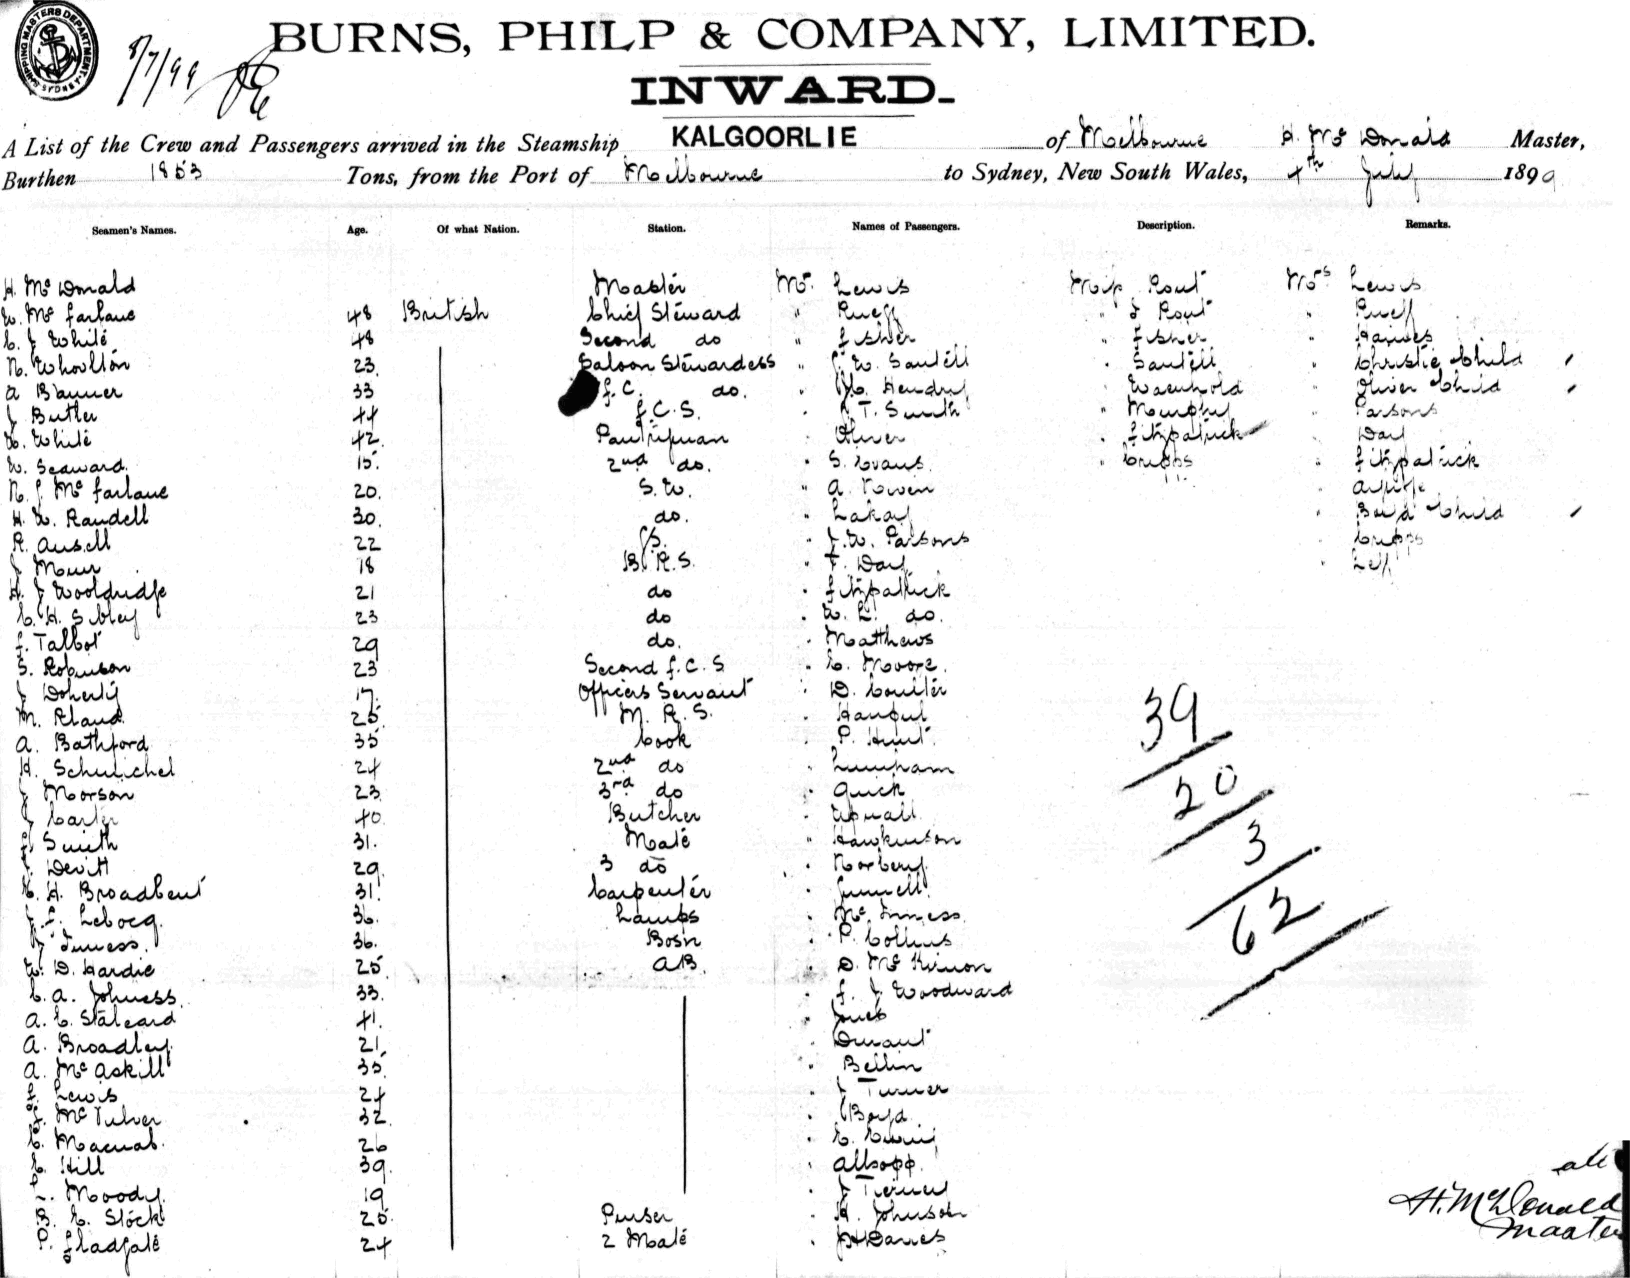 SHIPPING MASTERS DEPARTMENT SYDNEY
8/7/99
BURNS, PHILP & COMPANY, LIMITED.
INWARD.
A List of the Crew and Passengers arrived in the Steamship KALGOORLIE of Melbourne H. McDonald Master,
Burthen 1853 Tons, from the Port of Melbourne to Sydney, New South Wales, 4th July 1899
Seamen's Names. Age. Of what Nation. Station. Names of Passengers. Description. Remarks.
H. McDonald Master Mr. Lewis Miss Rout Mrs Lewis
W. McFarlane 48 British Chief Steward " Rueff " J Rout " Rueff
C. J White 48 Second do " Fisher " Fisher " Haines
N. Whoolton 23. Saloon Stewardess " W. Santell " Santell " Christie Child
A Banner 33 F.C. do. " Hendry " Oliver Child
J Butler 44 F.C.S. " T. Smith " Murphy " Parsons
W. White 42. Pantryman " Oliver " Fitzpatrick " Day
W. Seaward. 15. 2nd do. " S. Evans. " Cripps " Fitzpatrick
N. J. McFarlane 20. S.W. " A. Rowen
H. W. Randell 30. do. " Lakay " Boyd Child
R. Ansell 22 " J.W. Parsons " Cripps
J Muir 18 B.R.S. " F. Day " Ley
H. J Wooldridge 21 do " Fitzpatrick
C. H. Sibley 23 do " W. L. do.
F. Talbot 29 do. " Matthews
S. Robinson 23 Second F.C.S " E. Moore.
J Doherty 17. Officers Servant " D. Coulter
M. Rland 25 M.R.S.
A. Bathford 35 Cook " P. Hunt.
H. Schulichel 24 2nd do
J Morson 23 3rd do " Quick
J Carter 40. Butcher " Upwall
J Smith 31. Mate " Hawkinson
Devitt 29. 3 do " Norbery
C. H. Broadbent 31 Carpenter " Gunnell.
J. F. Lebocq. 36. Lamps " McInness.
J Inness. 36. Bosn " P. Collins
W. D. Hardie 25. AB. " D. McKinnon
C. A. Johness. 33. " F. J Woodward
A. C. Staleard 41. " Jones
A. Broadley 21. " Durant
A. McAskill 35. " Bellin
J. Lewis 24 " J Turner
J. McTulver 32. " Boyd.
C. Macnab. 26
C. Hill 39. " Allsopp.
L. Moody. 19
B. C. Stock 25. Purser " H. Johnson
P. Gladgate 24 2 Mate " J H Davies
39
20
3
62
H. McDonald
Master